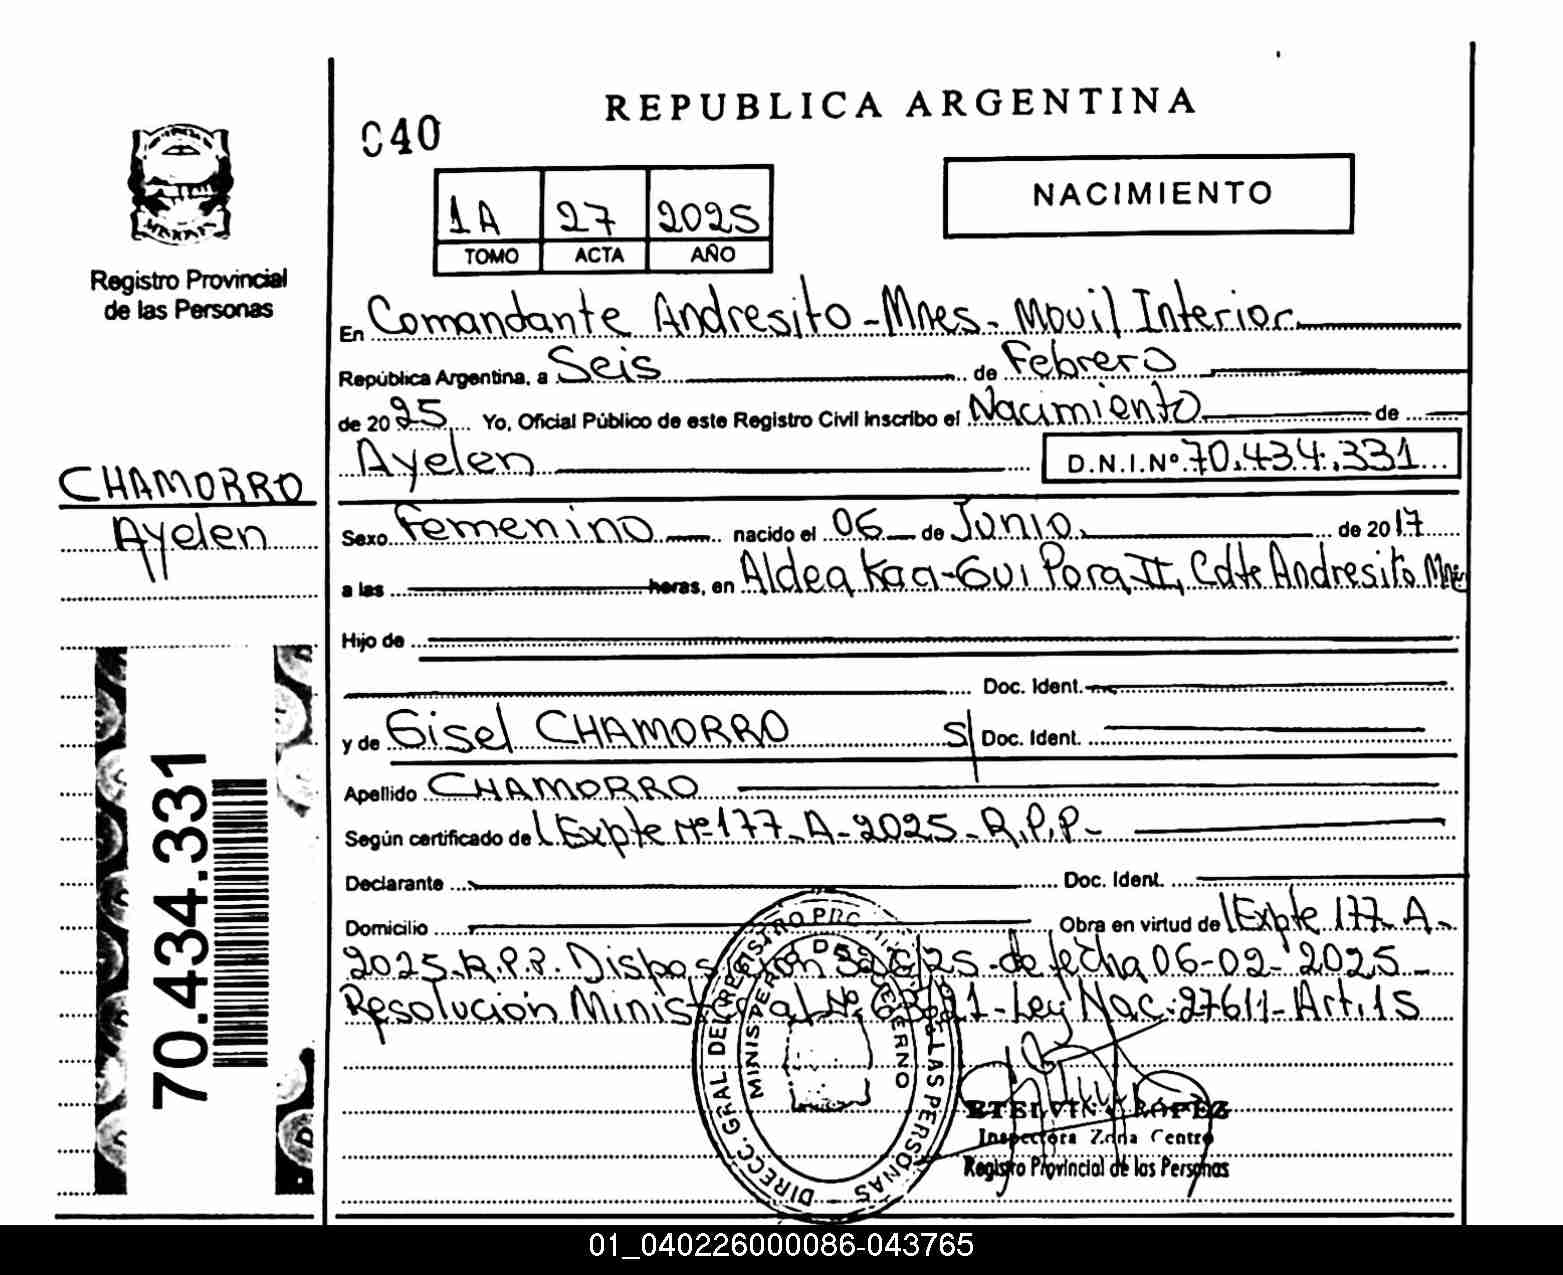 REPUBLICA ARGENTINA
040
NACIMIENTO
1A 27 2025
TOMO ACTA AÑO
Registro Provincial
de las Personas
En Comandante Andresito - Mnes - Movil Interior
República Argentina, a Seis de Febrero
de 2025 Yo, Oficial Público de este Registro Civil inscribo el Nacimiento de
Ayelen D.N.I.Nº 70.434.331
CHAMORRO
Ayelen
Sexo Femenino nacido el 06 de Junio de 2017
a las horas, en Aldea Kaa-Gui Pora II, Cdte Andresito Mnes
Hijo de
Doc. Ident.
y de Gisel CHAMORRO S/ Doc. Ident.
Apellido CHAMORRO
Según certificado de Expte Nº 177-A-2025-R.P.P-
Declarante Doc. Ident.
Domicilio Obra en virtud de Expte 177-A-
2025-R.P.P. Disposición /25 - de fecha 06-02-2025-
Resolucion Ministerial Nº - Ley Nac: 27611 - Art. 15
70.434.331
DIRECC. GRAL. DEL REGISTRO LAS PERSONAS
MINISTERIO DE GOBIERNO
LOPEZ
Inspectora Zona Centro
Registro Provincial de las Personas
01_040226000086-043765